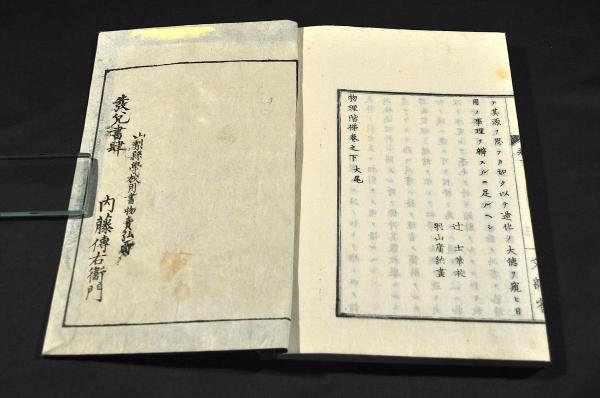 テ其源ヲ思 以テ造化ノ大徳ヲ窺ヒ日
用ノ事理ヲ辨スルニ足ルヘシ
辻 士革校
羽山庸納畫
物理階梯卷之下 大尾
文部省
發兌書肆
山梨縣學校用書物賣弘所
内藤傳右衞門